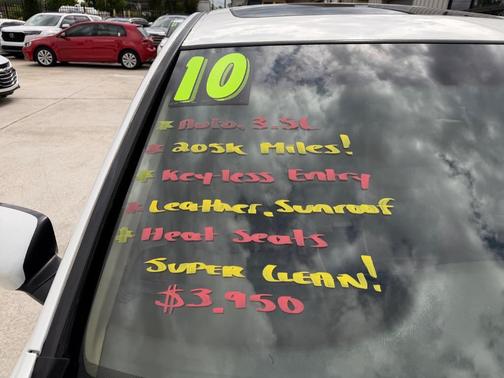 10
* Auto, 3.5L
* 205k Miles!
* Keyless Entry
* Leather, Sunroof
* Heat Seats
SUPER CLEAN!
$3,950